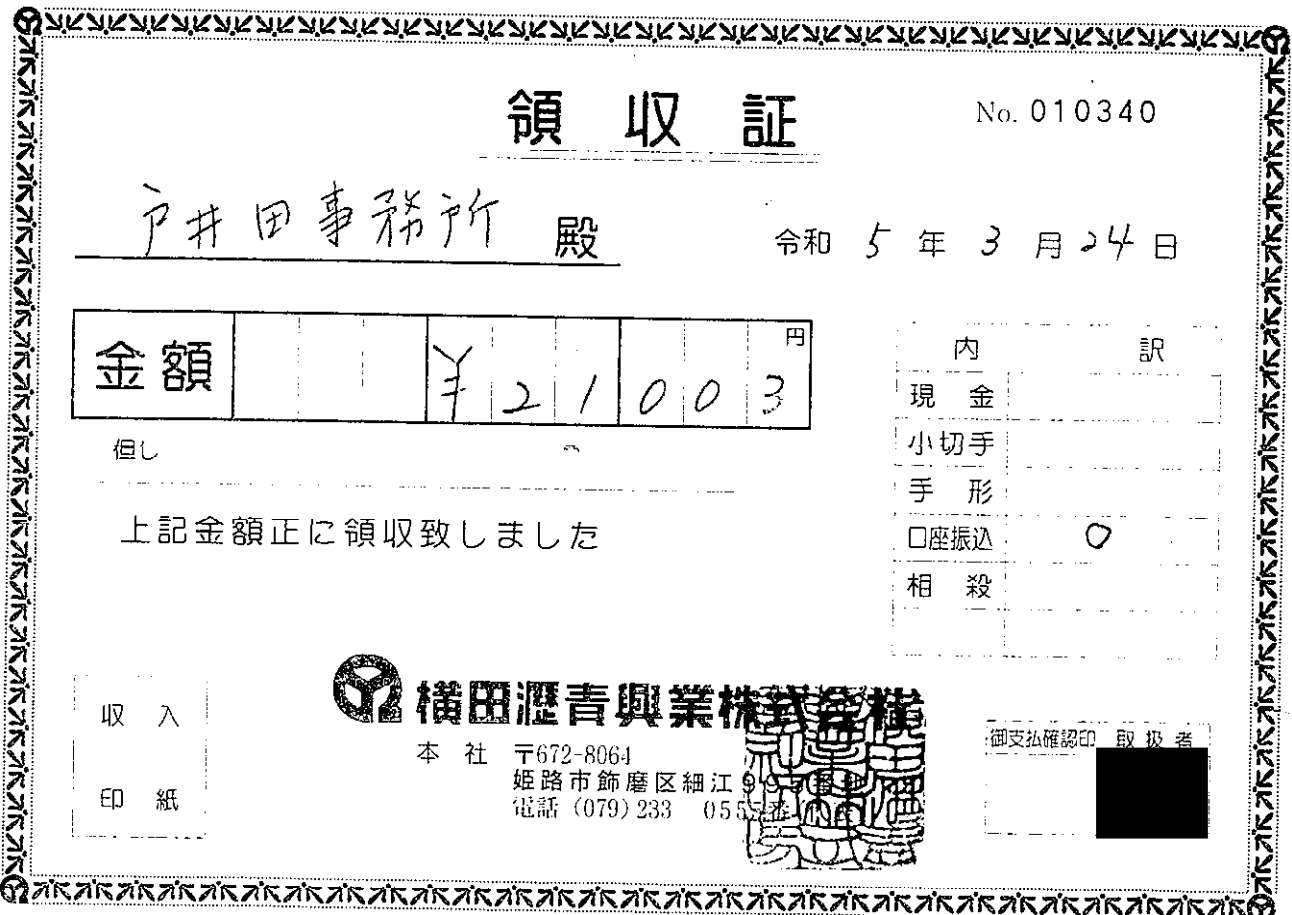 領収証
No. 010340
戸井田事務所 殿
令和 5 年 3 月 24 日
金額 ¥21003 円
但し
上記金額正に領収致しました
内訳
現金
小切手
手形
口座振込 ○
相殺
収入
印紙
横田瀝青興業株式会社
本社 〒672-8064
姫路市飾磨区細江
電話 (079) 233 055
御支払確認印 取扱者